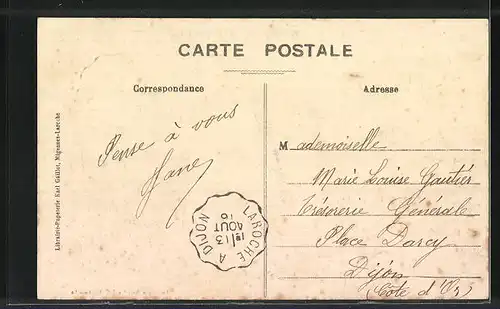 CARTE POSTALE
Correspondance
Adresse
Pense à vous
Jane
Mademoiselle
Marie Louise Gautier
Trésorerie Générale
Place Darcy
Dijon
(Côte d'Or)
LAROCHE A DIJON
13
AOUT
Librairie-Papeterie Karl Guillot, Migennes-Laroche